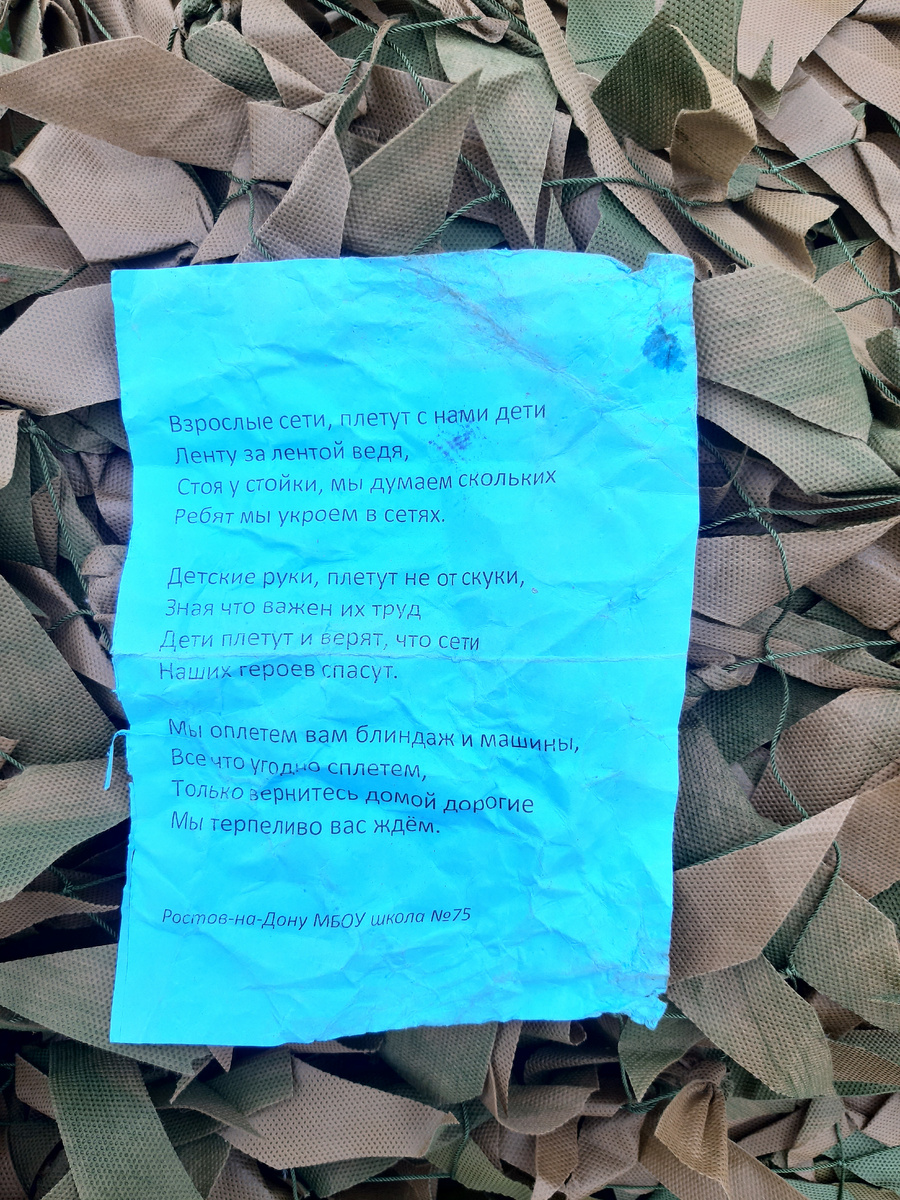 Взрослые сети, плетут с нами дети
Ленту за лентой ведя,
Стоя у стойки, мы думаем скольких
Ребят мы укроем в сетях.
Детские руки, плетут не от скуки,
Зная что важен их труд
Дети плетут и верят, что сети
Наших героев спасут.
Мы оплетем вам блиндаж и машины,
Все что угодно сплетем,
Только вернитесь домой дорогие
Мы терпеливо вас ждём.
Ростов-на-Дону МБОУ школа №75